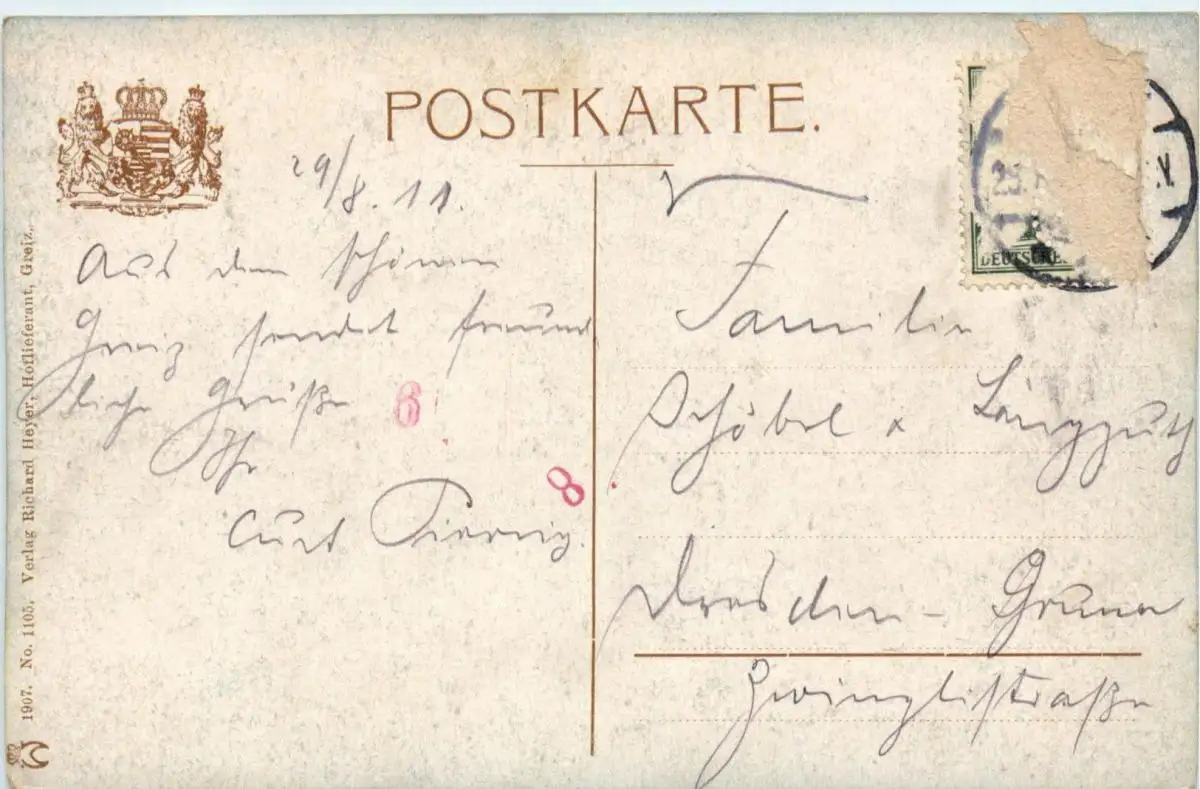 POSTKARTE.
29/8. 11.
Aus dem schönen
Greiz sendet freund
liche Grüße
Ihr
Curt
6
8
Familie
Schöbel & Langguth
Dresden - Gruna
Zwinglistraße
DEUTSCHES
1907. No. 1105. Verlag Richard Heyer, Hoflieferant, Greiz.